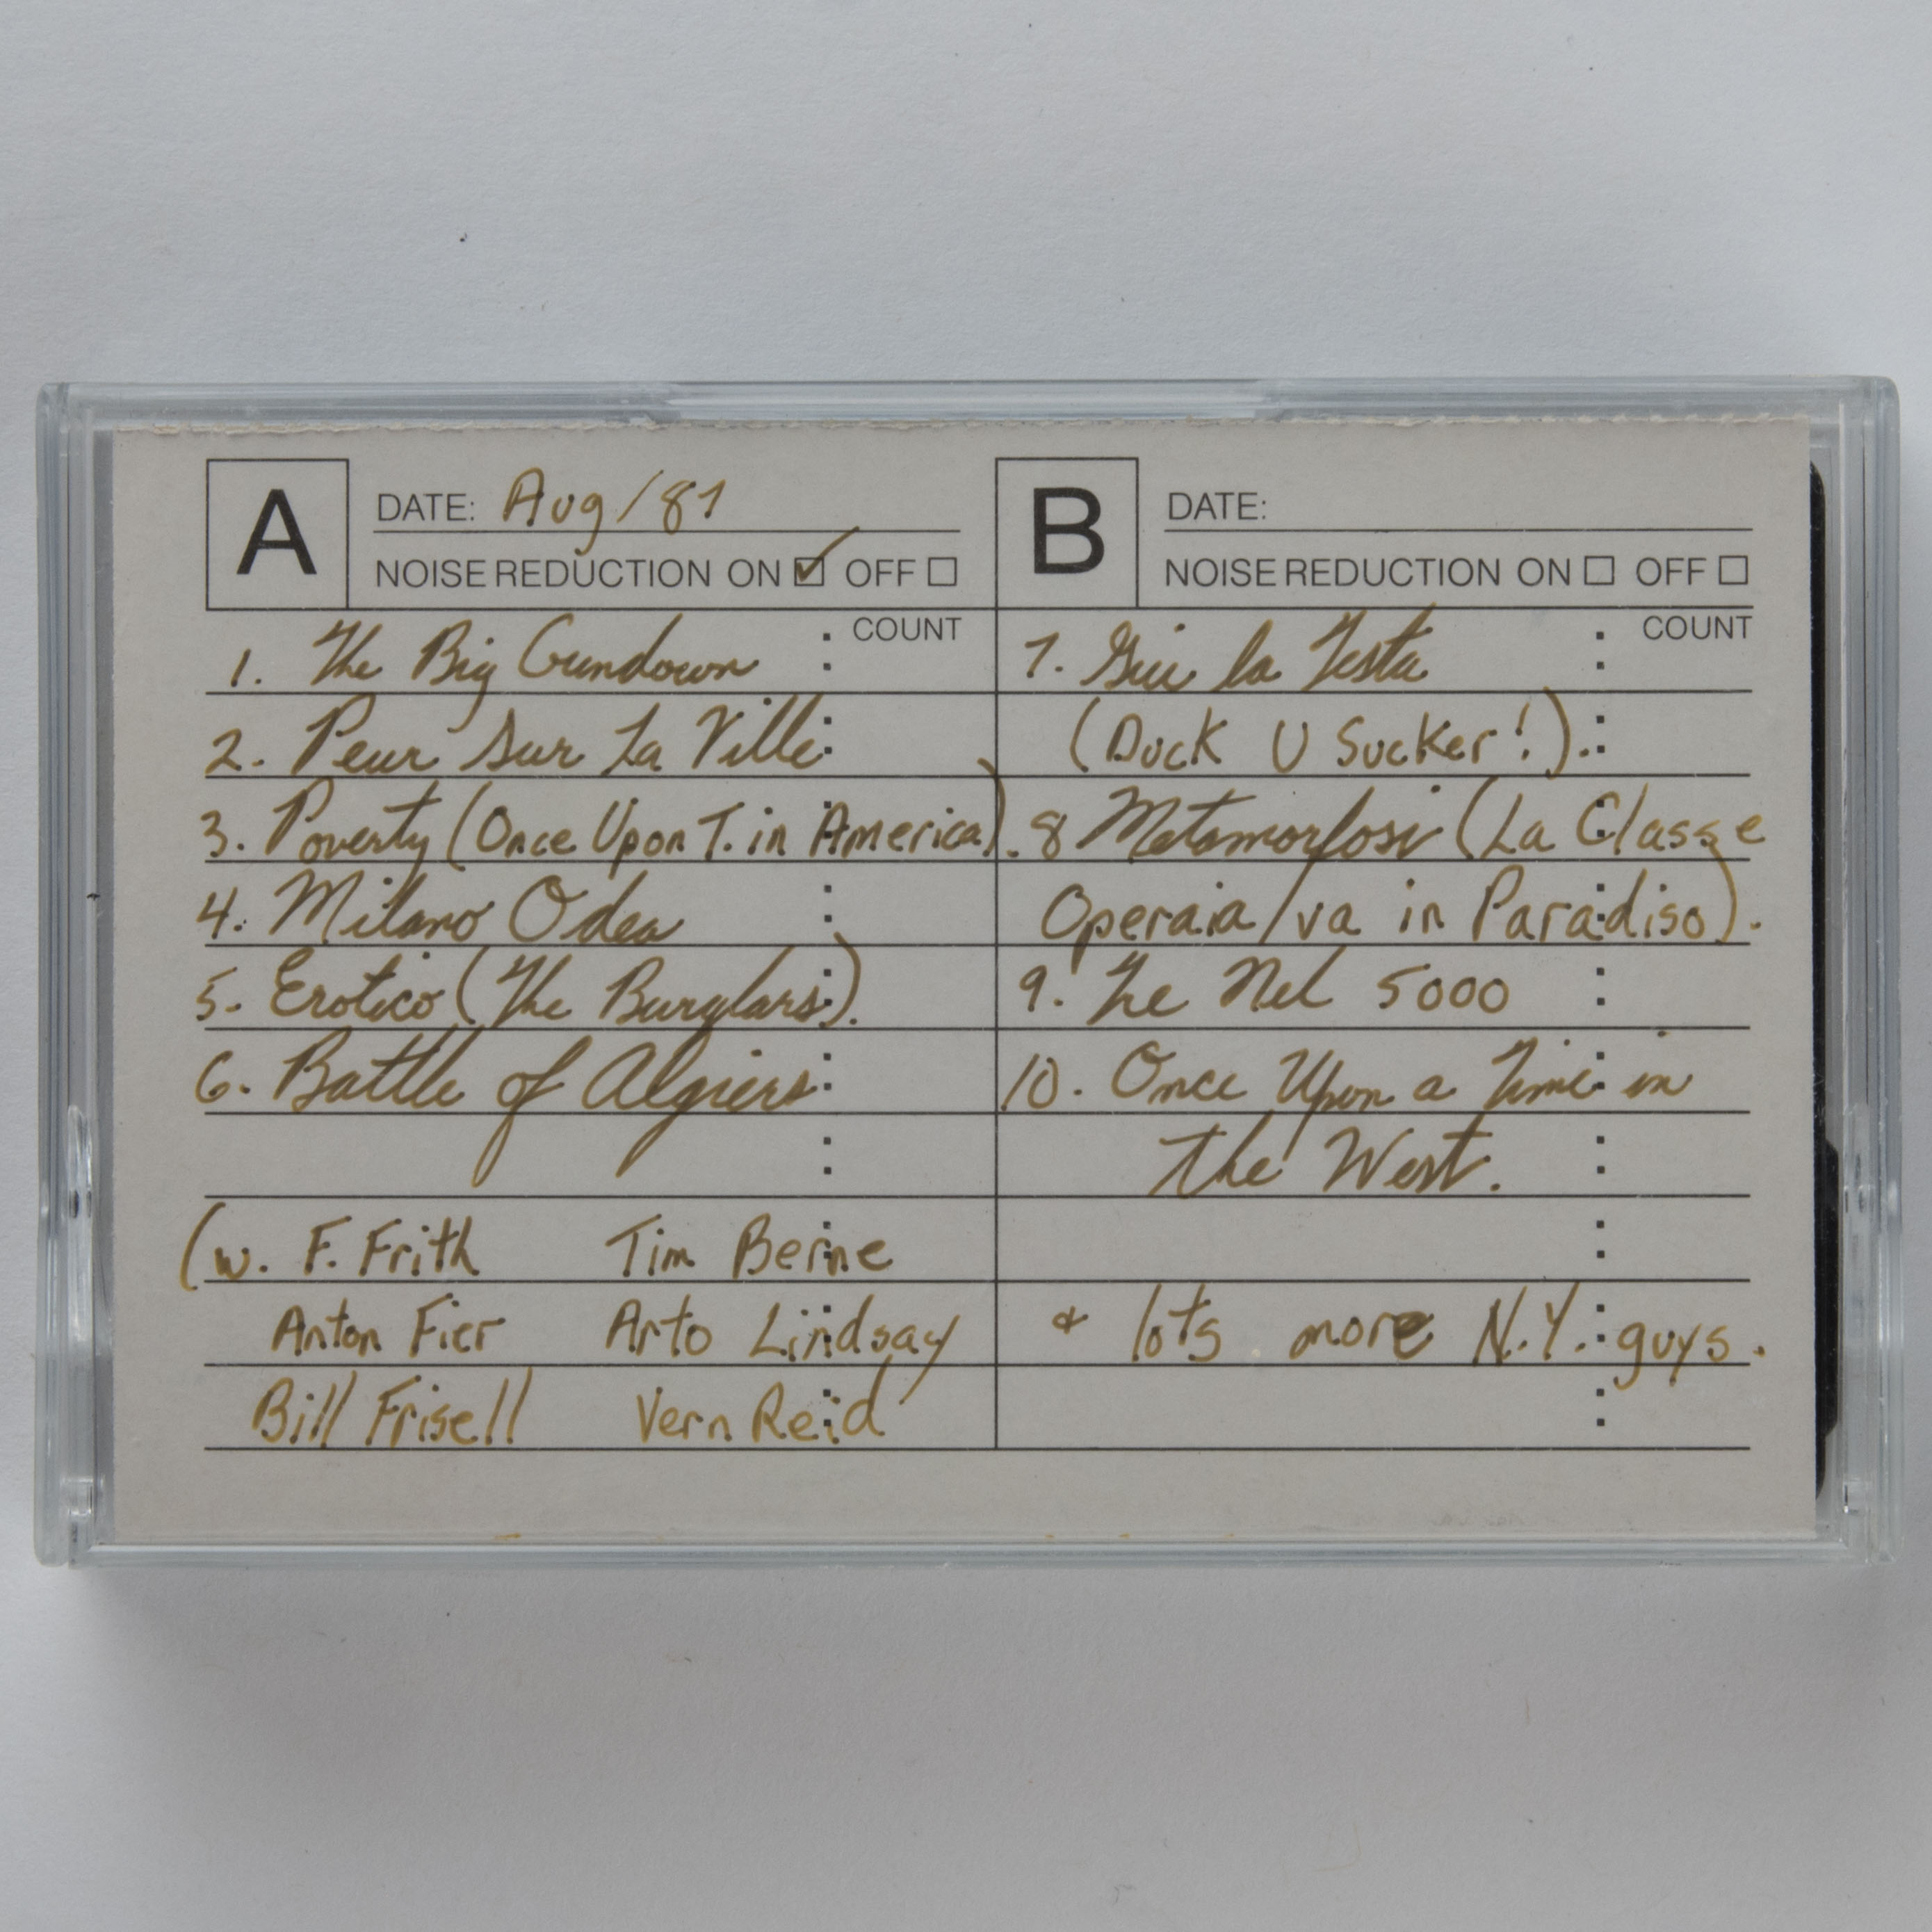 A
DATE: Aug/87
NOISE REDUCTION ON ☑ OFF ☐
COUNT
1. The Big Gundown
2. Peur Sur La Ville
3. Poverty (Once Upon T. in America).
4. Milano Odea
5. Erotico (The Burglars).
6. Battle of Algiers
(w. F. Frith Tim Berne
Anton Fier Arto Lindsay
Bill Frisell Vern Reid
B
DATE:
NOISE REDUCTION ON ☐ OFF ☐
COUNT
7. Giu la Testa
(Duck U Sucker!).
8 Metamorfosi (La Classe
Operaia/va in Paradiso).
9. Tre Nel 5000
10. Once Upon a Time in
the West.
& lots more N.Y. guys.